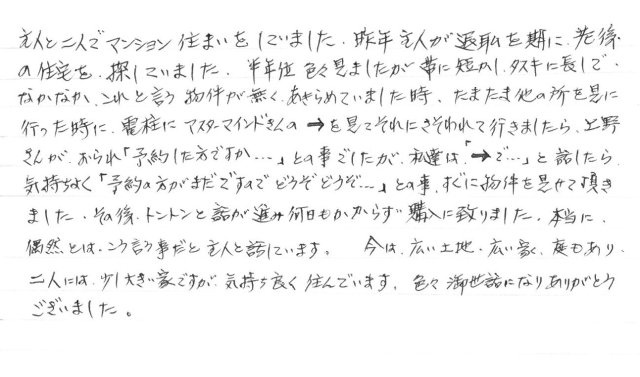 主人と二人でマンション住まいをしていました。昨年主人が退職を期に、老後
の住宅を、探していました。半年位色々見ましたが帯に短かし、タスキに長しで、
なかなか、これと言う物件が無く、あきらめていました時、たまたま他の所を見に
行った時に、電柱にマスターマインドさんの→を見てそれにさそわれて行きましたら、上野
さんが、おられ「予約した方ですか…」との事でしたが、私達は「→で…」と話したら、
気持ちよく「予約の方がまだですので どうぞどうぞ…」との事、すぐに物件を見せて頂き
ました。その後、トントンと話が進み何日もかからず購入に致りました。本当に、
偶然とは、こう言う事だと主人と話しています。 今は、広い土地・広い家、庭もあり、
二人には、少し大きい家ですが、気持ち良く住んでいます。色々御世話になりありがとう
ございました。